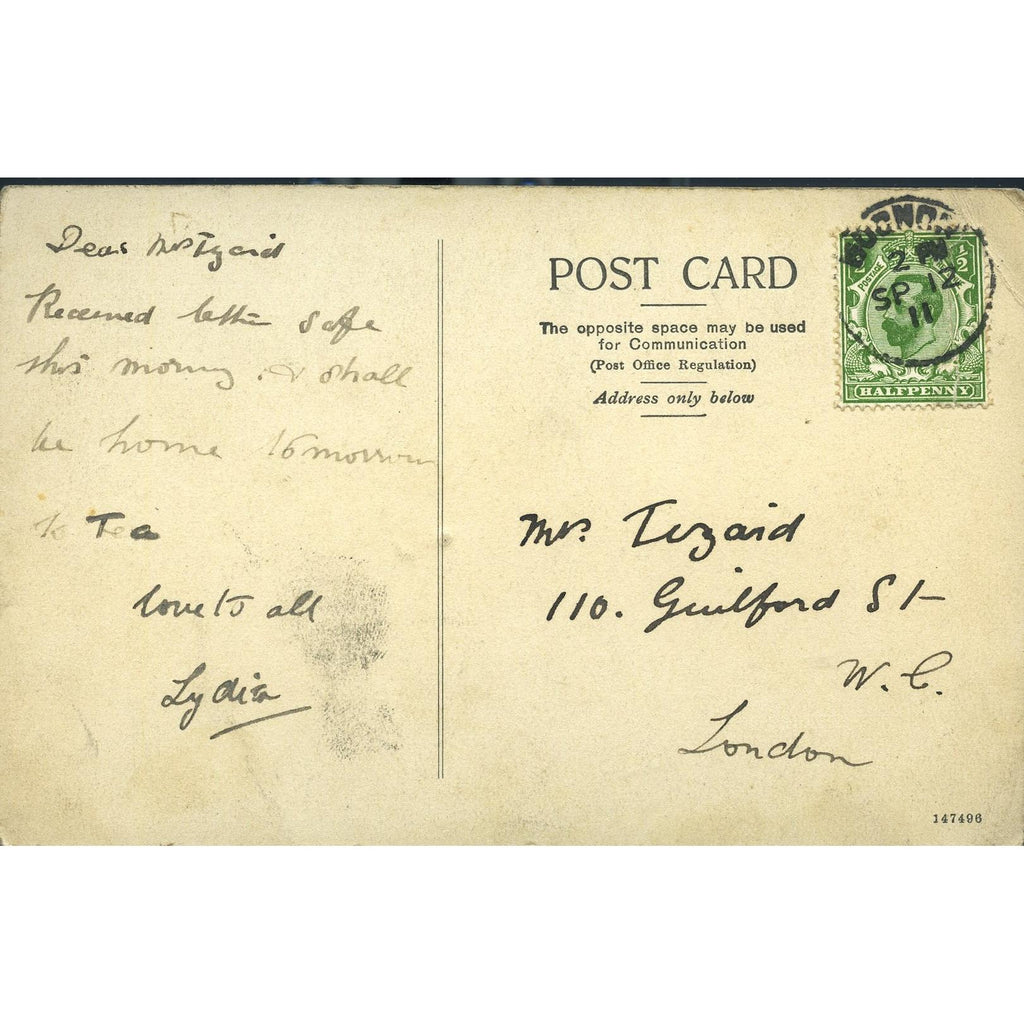 Dear Mrs Tzaid
Received letter safe
this morning. & shall
be home tomorrow
to Tea
love to all
Lydia
POST CARD
The opposite space may be used
for Communication
(Post Office Regulation)
Address only below
2 PM
SP 12
11
POSTAGE
1/2
HALFPENNY
Mrs. Tizaid
110. Guilford St
W. C.
London
147496